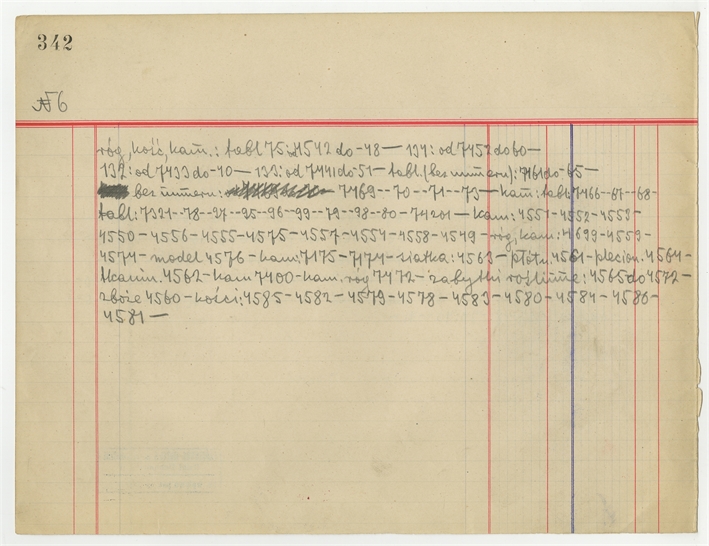 342
№ 6
róg, kość, kam̃.: tabl 75: 4542 do -48 — 134: od 7452 do 60 —
132: od 7433 do -40 — 133: od 7441 do 51 — tabl. (bez numeru): 7461 do -65 —
bez numeru: 7469 -- 70 -- 71 -- 73 — kam̃: tabl: 7466 -- 67 -- 68 -
tabl: 7321 -- 78 -- 27 -- 25 -- 96 -- 99 -- 79 -- 98 -- 80 - 74201 — kam: 4551 - 4552 - 4553 -
4550 - 4556 - 4555 - 4575 - 4557 - 4554 - 4558 - 4549 - róg, kam: 4699 - 4559 -
4574 - model 4576 - kam: 7175 - 7174 - siatka: 4563 - płótn. 4561 - plecion. 4564 -
tkanin. 4562 - kam 7400 - kam. róg 7472 - zabytki roślinne: 4565 do 4572 -
zboże 4560 - kości: 4585 - 4582 - 4579 - 4578 - 4583 - 4580 - 4584 - 4586 -
4581 —